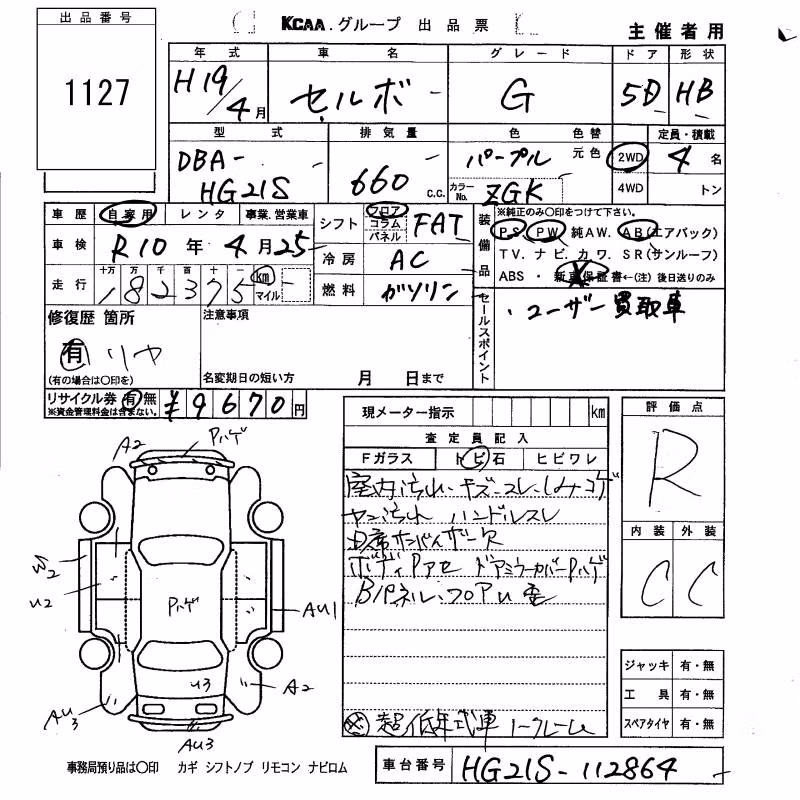 出品番号
1127
KCAA.グループ 出品票
主催者用
年式
H19/4月
車名
セルボ
グレード
G
ドア
5D
形状
HB
型式
DBA-
HG21S
排気量
660 c.c.
色 色替
パープル 元色
カラーNo. ZGK
2WD
4WD
定員・積載
4名
トン
車歴 自家用 レンタ 事業.営業車
車検 R10年4月25
走行 十万 万 千 百 十 一 km マイル
182375
シフト フロア コラム パネル FAT
冷房 AC
燃料 ガソリン
装備品
※純正のみ〇印をつけて下さい。
P.S. PW 純AW. AB(エアバック)
TV. ナビ. カワ. SR(サンルーフ)
ABS ・ 新車保証書←(注)後日送りのみ
セールスポイント
・ユーザー買取車
修復歴 箇所
有 リヤ
(有の場合は〇印を)
注意事項
名変期日の短い方 月 日まで
リサイクル券 有・無
※資金管理料金は含まない。
¥9670円
現メーター指示 km
査定員記入
Fガラス トビ石 ヒビワレ
室内汚れ・キズ・スレ・
ヤニ汚れ ハンドルスレ
サンバイザー欠
ボディPアセ ドアミラーカバーPハゲ
Bパネル・フロアU
超低年式車 ノークレーム
評価点
R
内装 外装
C C
A2
Pハゲ
W2
U2
Pハゲ
AU1
U3
A2
AU3
AU3
ジャッキ 有・無
工具 有・無
スペアタイヤ 有・無
事務局預り品は〇印 カギ シフトノブ リモコン ナビロム
車台番号 HG21S-112864